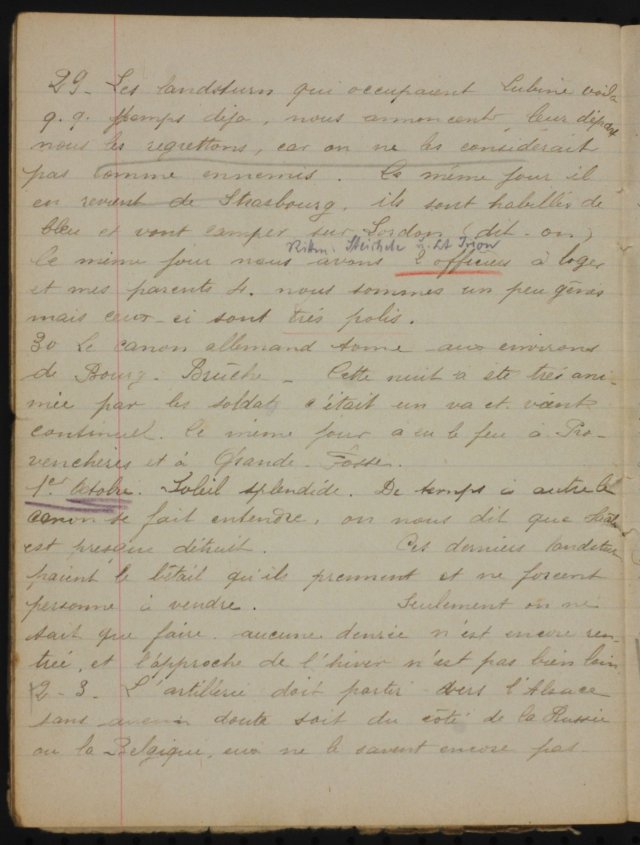 29 - Les landsturm qui occupaient Lubine voila
q. q. temps déja, nous annoncent leur départ
nous les regrettons, car on ne les considérait
pas comme ennemis. Ce même jour il
en revient de Strasbourg, ils sont habillés de
bleu et vont camper sur Lordon (dit-on)
u. Lt
le même jour nous avons 2 officiers à loger
et mes parents 4. nous sommes un peu génés
mais ceux-ci sont trés polis.
30 Le canon allemand tonne aux environs
de Bourg-Brûche - Cette nuit a été trés ani-
mée par les soldats c'était un va et vient
continuel. le même jour a eu le feu à Pro-
venchères et à Grande-Fosse.
1er Octobre. Soleil splendide. De temps à autre le
canon se fait entendre, on nous dit que
est presque détruit. Ces derniers landstur
paient le bétail qu'ils prennent et ne forcent
personne à vendre. Seulement on ne
sait que faire. aucune denrée n'est encore ren-
trée, et l'approche de l'hiver n'est pas bien loin
2 - 3. L'artillérie doit partir vers l'Alsace
sans doute soit du côté de la Russie
ou la Belgique, eux ne le savent encore pas